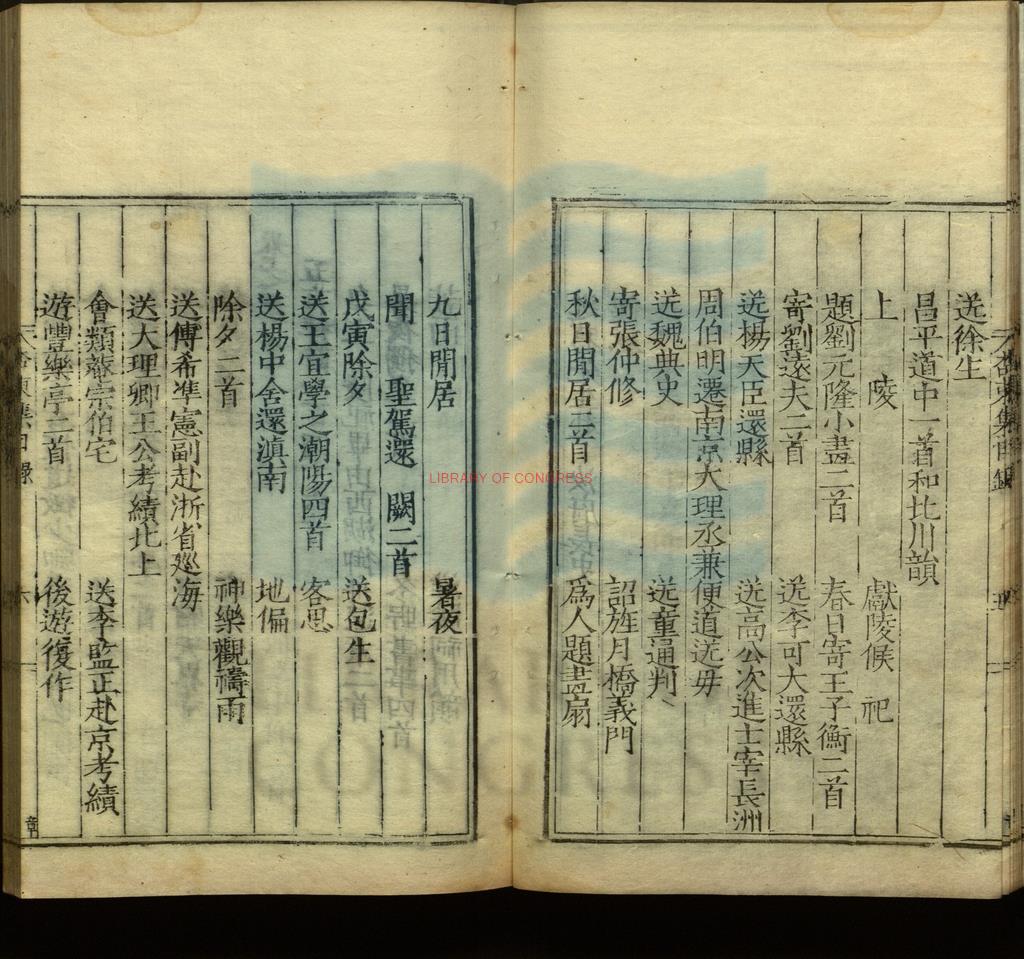 送徐生
昌平道中一首和北川韻
上 陵 獻陵候 祀
題劉元隆小畫二首 春日寄王子衡二首
寄劉遠夫二首 送李可大還縣
送楊天臣還縣 送高公次進士宰長洲
周伯明遷南京大理丞兼便道送母
送魏典史 送董通判
寄張仲修 詔旌月橋義門
秋日閒居二首 爲人題畫扇
LIBRARY OF CONGRESS
九日閒居 暑夜
聞 聖駕還 闕二首
戊寅除夕 送包生
送王宜學之潮陽四首 客思
送楊中舍還滇南 地偏
除夕二首 神樂觀禱雨
送傅希準憲副赴浙省廵海
送大理卿王公考績北上
會類菴宗伯宅 送李監正赴京考績
遊豐樂亭二首 後遊復作
六
章